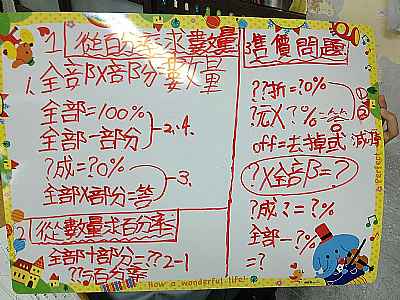 1 從百分率求數量
1. 全部X部分數量
全部=100%
全部-部分 2.4.
?成=?0%
全部X部分=答 3.
2 從數量求百分率
全部十部分=?? 2-1
??=百分率
售價問題
??折=?0% ①
?元X?%=答 ②
off=去掉或減掉
?X全部=?
?成?=?%
全部-?%
=?
How a wonderful life!
Perfect